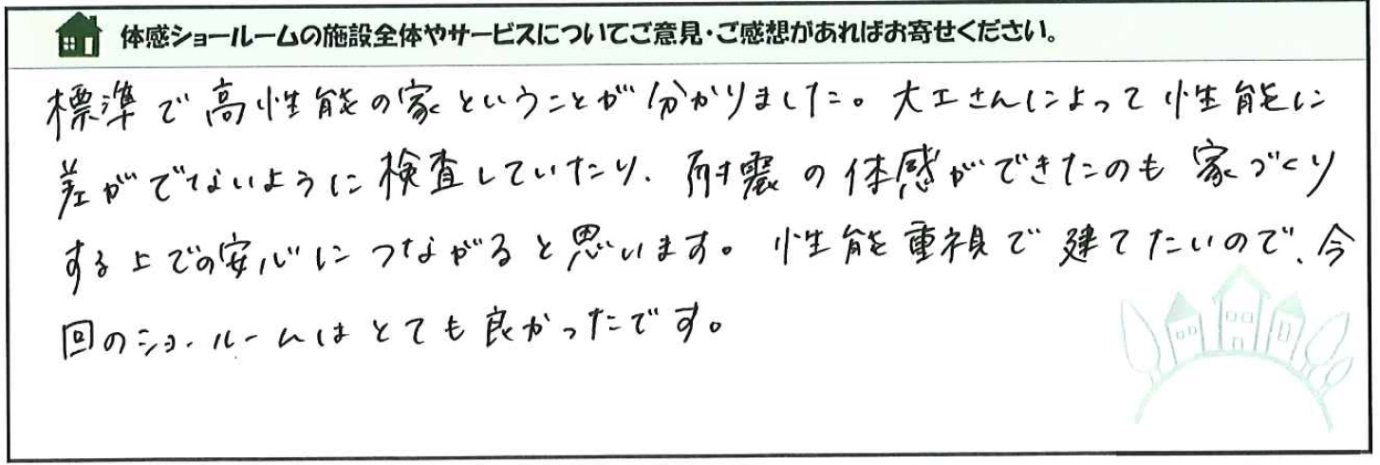 体感ショールームの施設全体やサービスについてご意見・ご感想があればお寄せください。
標準で高性能の家ということが分かりました。大工さんによって性能に
差がでないように検査していたり、耐震の体感ができたのも家づくり
する上での安心につながると思います。性能重視で建てたいので、今
回のショールームはとても良かったです。